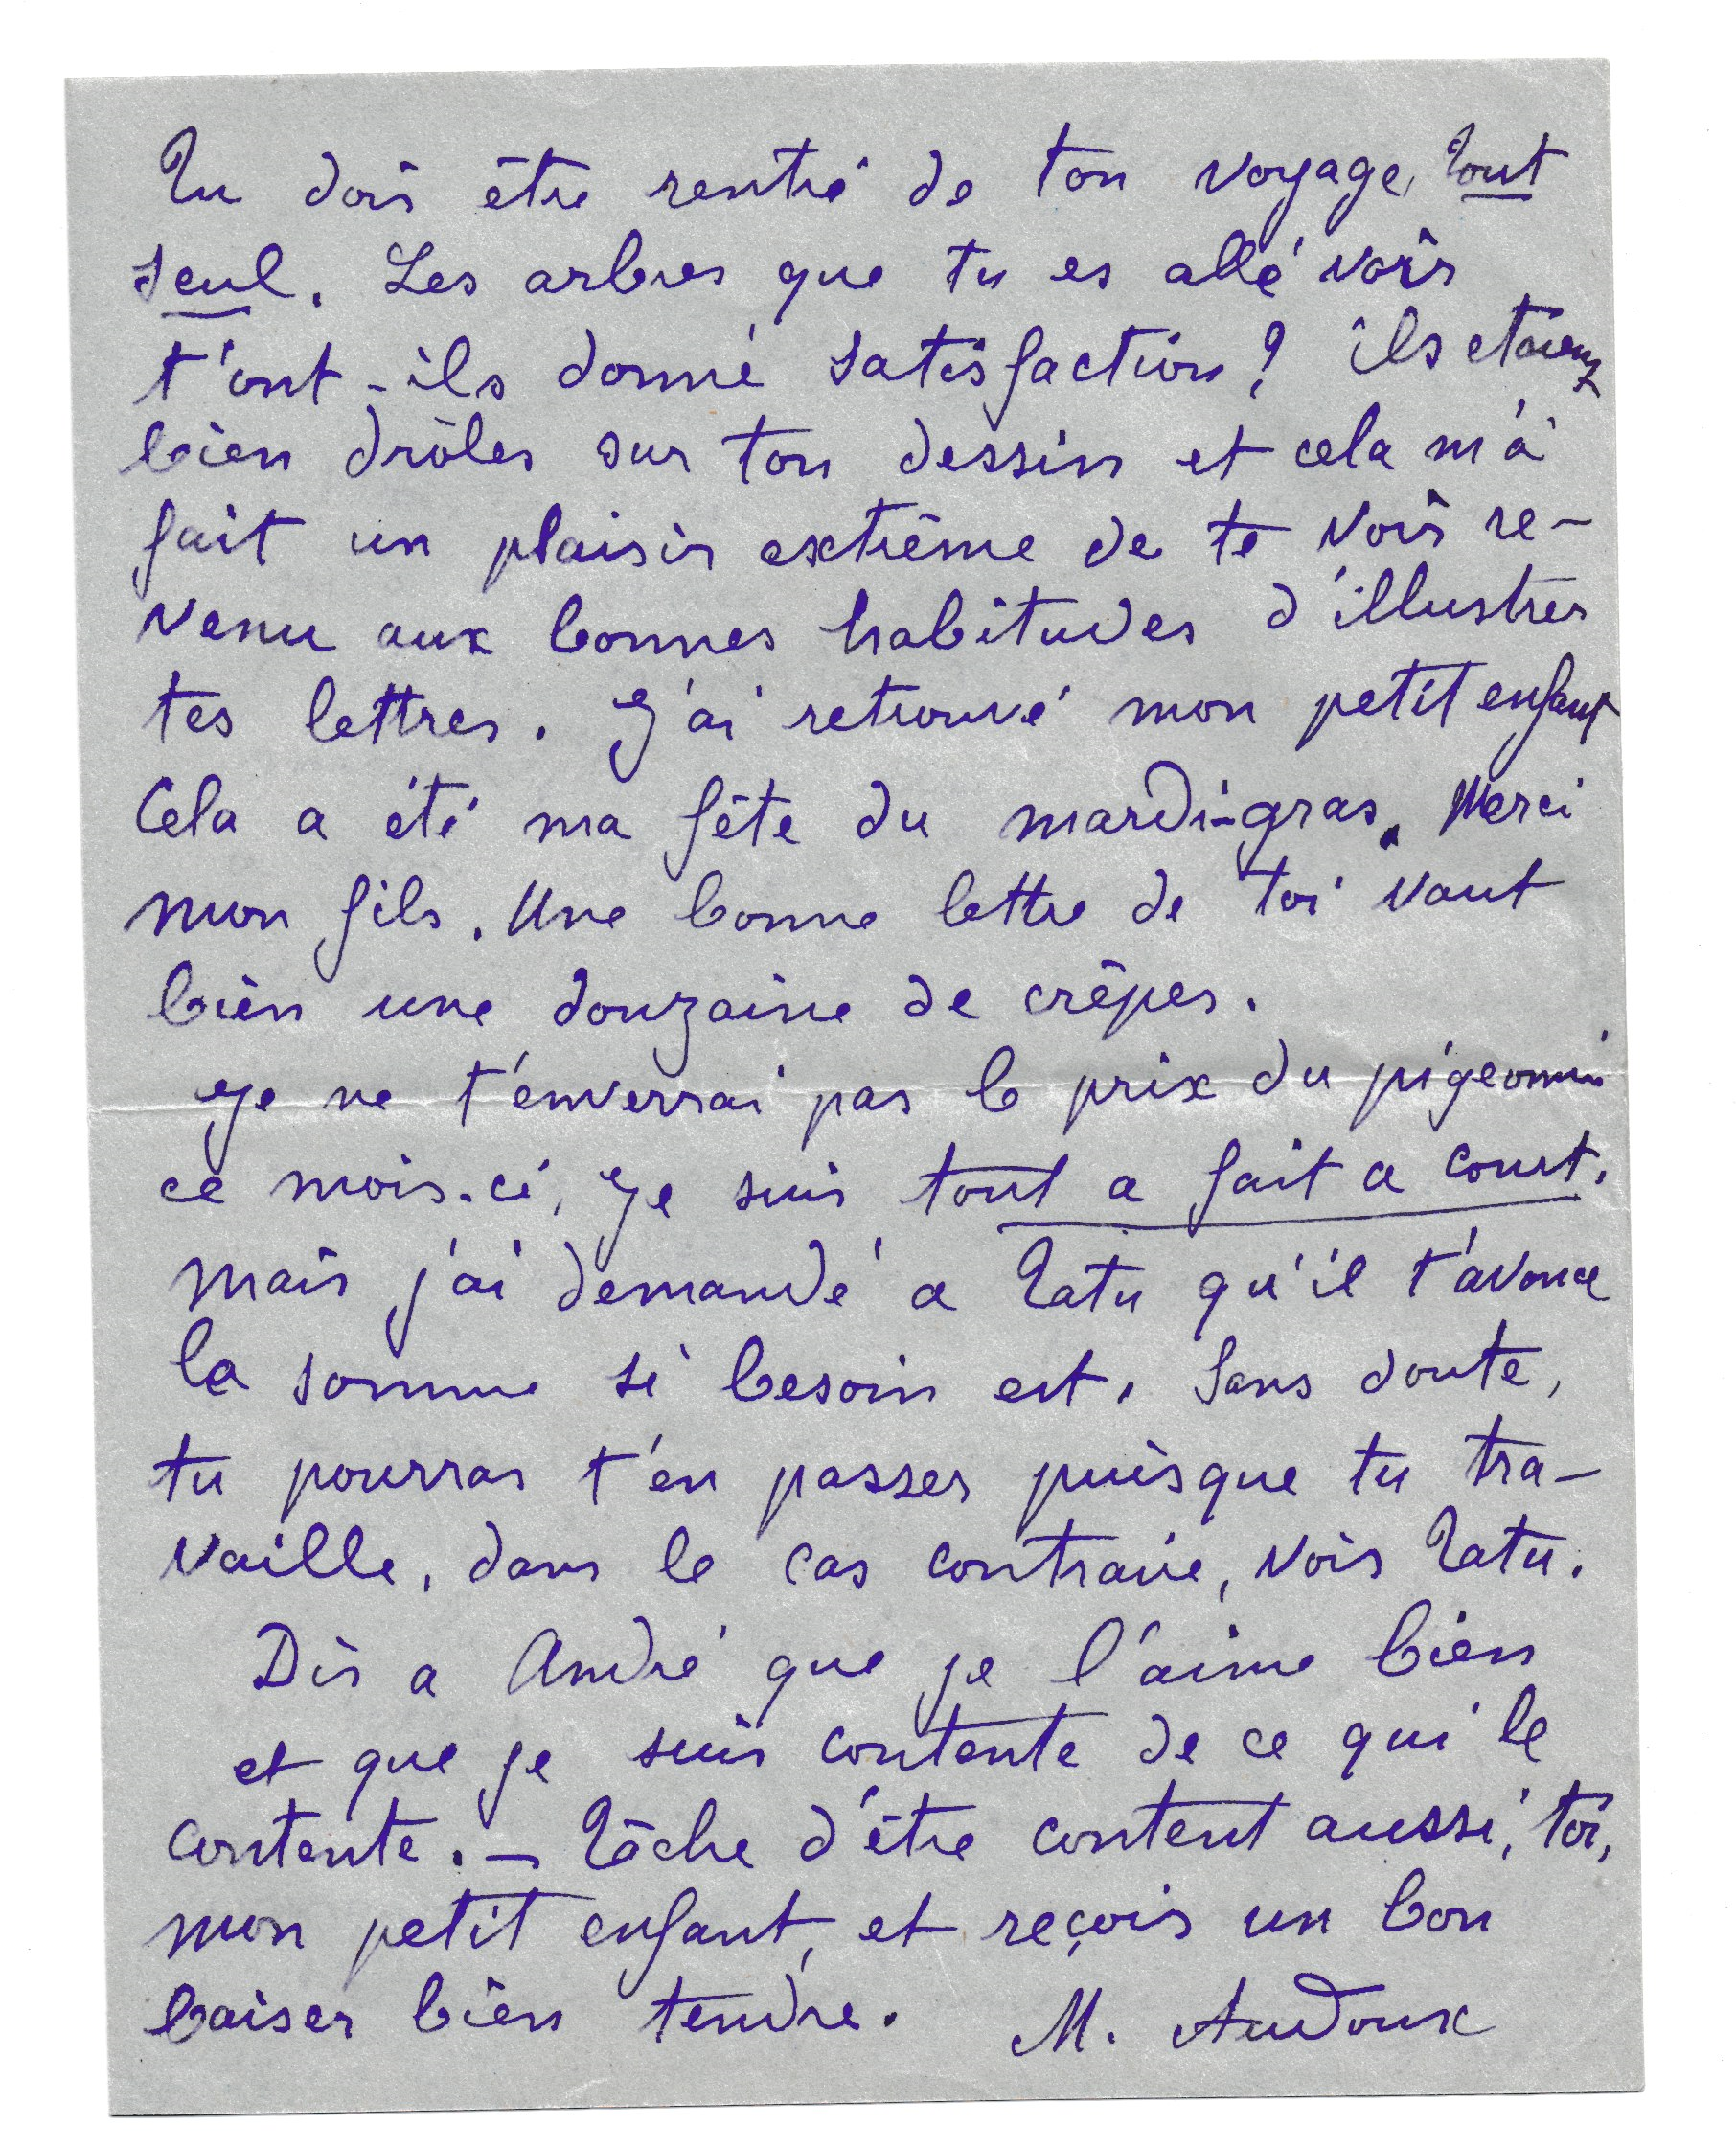 Tu dois être rentré de ton voyage, tout
seul. Les arbres que tu es allé voir
t'ont-ils donné satisfaction ? ils etaient
bien drôles sur ton dessin et cela m'a
fait un plaisir extrême de te voir re-
venu aux bonnes habitudes d'illustrer
tes lettres. J'ai retrouvé mon petit enfant
Cela a été ma fête du mardi-gras. Merci
mon fils. Une bonne lettre de toi vaut
bien une douzaine de crêpes.
Je ne t'enverrai pas le prix du pigeonnier
ce mois-ci, je suis tout a fait a court.
mais j'ai demandé a Tatu qu'il t'avance
la somme si besoin est. Sans doute,
tu pourras t'en passer puisque tu tra-
vaille, dans le cas contraire, vois Tatu.
Dis a André que je l'aime bien
et que je suis contente de ce qui le
contente. - Tâche d'être content aussi, toi,
mon petit enfant, et reçois un bon
baiser bien tendre. M. Audoux